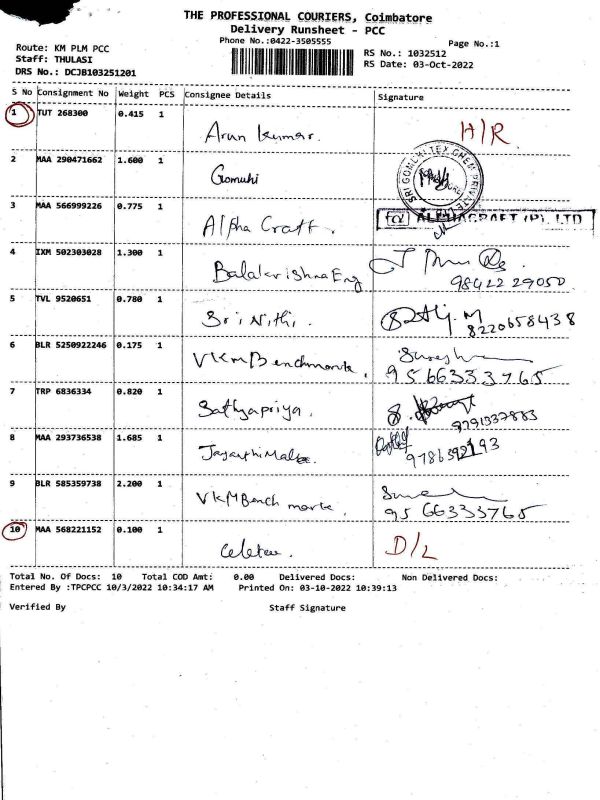 THE PROFESSIONAL COURIERS, Coimbatore
Delivery Runsheet - PCC
Phone No.:0422-3505555
Page No.:1
Route: KM PLM PCC
Staff: THULASI
DRS No.: DCJB103251201
RS No.: 1032512
RS Date: 03-Oct-2022
S No Consignment No Weight PCS Consignee Details Signature
1 TUT 268300 0.415 1 Arun kumar. H/R
2 MAA 290471662 1.600 1 Gomuki
3 MAA 566999226 0.775 1 Alpha Craft.
ALPHACRAFT (P). LTD
4 IXM 502303028 1.300 1 Balakrishna Eng
98422 29050
5 TVL 9520651 0.780 1 Sri Nithi.
8220658438
6 BLR 5250922246 0.175 1 VKM Benchmark.
9566333765
7 TRP 6836334 0.820 1 Sathyapriya.
8 MAA 293736538 1.685 1
9 BLR 585359738 2.200 1 VKM Bench mark.
9566333765
10 MAA 568221152 0.100 1 D/L
Total No. Of Docs: 10 Total COD Amt: 0.00 Delivered Docs: Non Delivered Docs:
Entered By :TPCPCC 10/3/2022 10:34:17 AM Printed On: 03-10-2022 10:39:13
Verified By Staff Signature